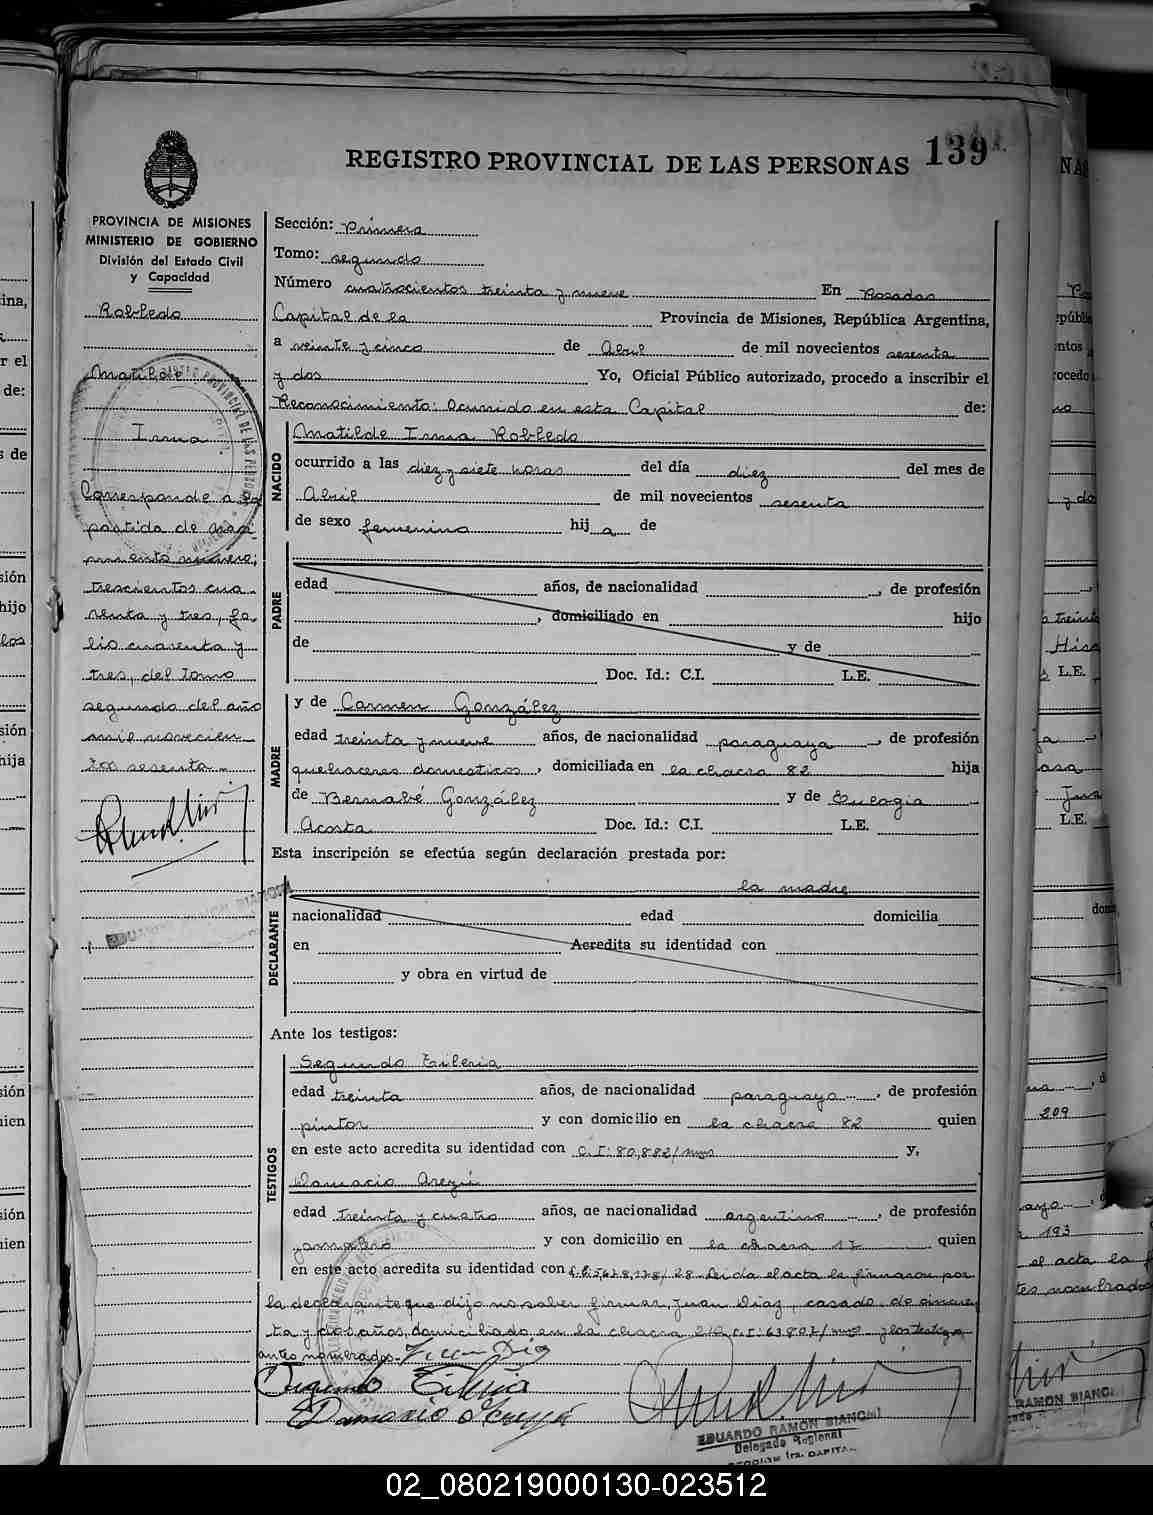 REGISTRO PROVINCIAL DE LAS PERSONAS 139
PROVINCIA DE MISIONES
MINISTERIO DE GOBIERNO
División del Estado Civil
y Capacidad
Robledo
Matilde
Irma
Corresponde a la
partida de naci
miento número;
trescientos cua-
renta y tres, fo-
lio cuarenta y
tres, del Tomo
segundo del año
mil novecien
tos sesenta.-
Sección: Primera
Tomo: segundo
Número cuatrocientos treinta y nueve En Posadas
Capital de la Provincia de Misiones, República Argentina,
a veinte y cinco de Abril de mil novecientos sesenta
y dos Yo, Oficial Público autorizado, procedo a inscribir el
Reconocimiento: Ocurrido en esta Capital de:
NACIDO
Matilde Irma Robledo
ocurrido a las diez y siete horas del día diez del mes de
Abril de mil novecientos sesenta
de sexo femenino hij a de
PADRE
edad años, de nacionalidad , de profesión
, domiciliado en hijo
de y de
Doc. Id.: C.I. L.E.
MADRE
y de Carmen González
edad treinta y nueve años, de nacionalidad paraguaya , de profesión
quehaceres domesticos , domiciliada en la chacra 82 hija
de Bernabé González y de Eulogia
Acosta Doc. Id.: C.I. L.E.
Esta inscripción se efectúa según declaración prestada por:
DECLARANTE
la madre
nacionalidad edad domicilia
en Acredita su identidad con
y obra en virtud de
Ante los testigos:
TESTIGOS
Segundo
edad treinta años, de nacionalidad paraguayo , de profesión
pintor y con domicilio en la chacra 82 quien
en este acto acredita su identidad con C.I: 80,882/mns y,
Damacio
edad treinta y cuatro años, de nacionalidad argentino , de profesión
y con domicilio en la chacra 17 quien
en este acto acredita su identidad con Leida el acta la firmaron por
la declarante que dijo no saber firmar, Juan Diaz, casado, de cincuen
ta y dos años, domiciliado en la chacra C.I: 63807/mns y los testigos
antes nombrados.-
EDUARDO RAMON BIANCHI
Delegado Regional
02_080219000130-023512